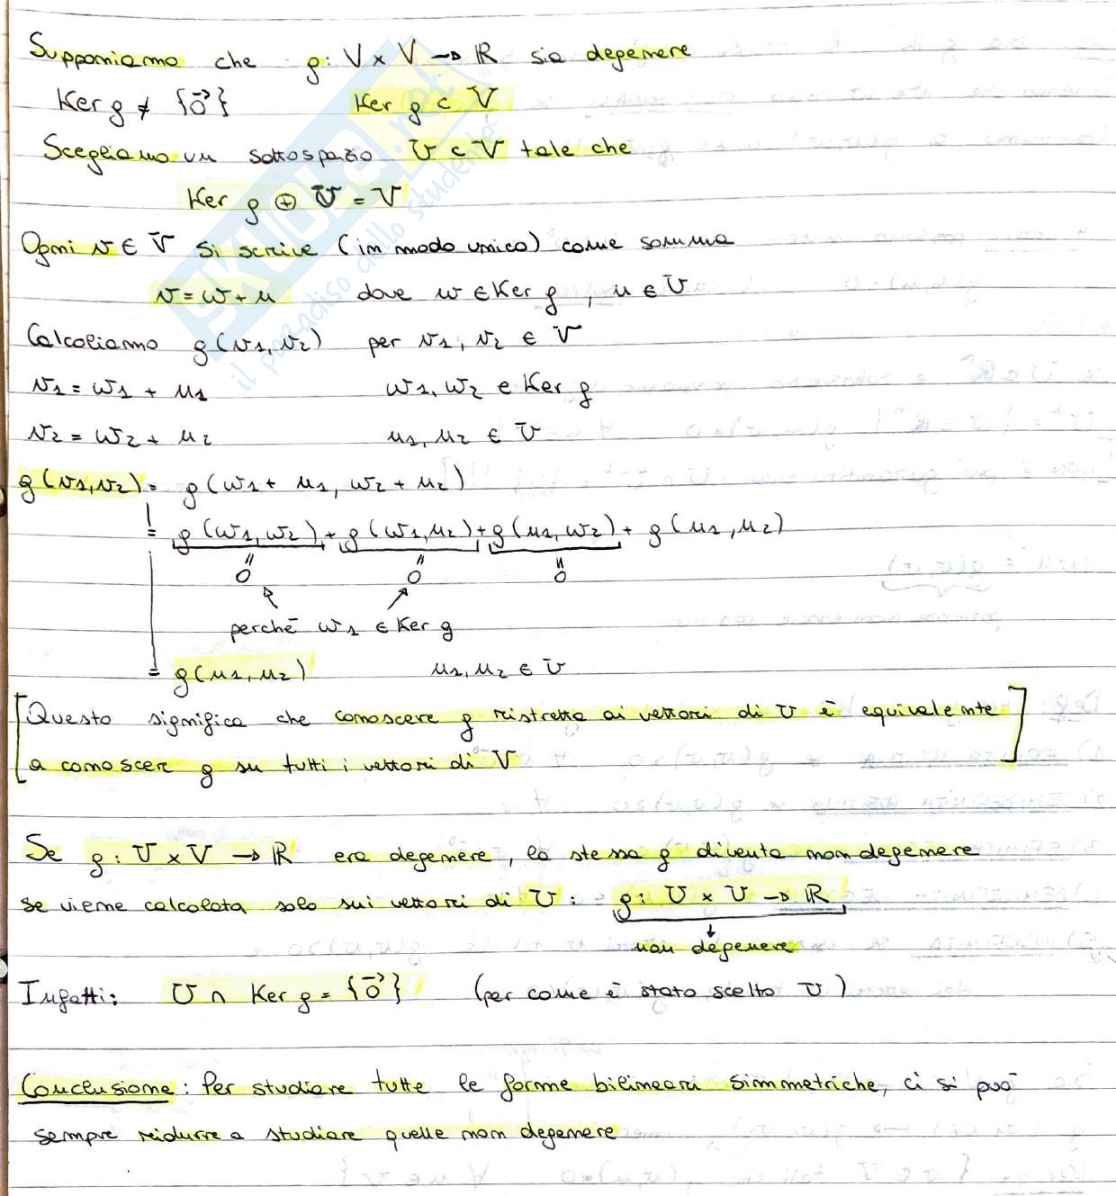 Supponiamo che g: V x V → ℝ sia degenere
Ker g ≠ {0⃗} Ker g ⊂ V
Scegliamo un sottospazio U ⊂ V tale che
Ker g ⊕ U = V
Ogni v ∈ V si scrive (in modo unico) come somma
v = w + u dove w ∈ Ker g, u ∈ U
Calcoliamo g(v1, v2) per v1, v2 ∈ V
v1 = w1 + u1 w1, w2 ∈ Ker g
v2 = w2 + u2 u1, u2 ∈ U
g(v1, v2) = g(w1 + u1, w2 + u2)
= g(w1, w2) + g(w1, u2) + g(u1, w2) + g(u1, u2)
= 0 = 0 = 0
perchè w1 ∈ Ker g
= g(u1, u2) u1, u2 ∈ U
[Questo significa che conoscere g ristretta ai vettori di U è equivalente
a conoscere g su tutti i vettori di V]
Se g: V x V → ℝ era degenere, la stessa g diventa non degenere
se viene calcolata solo sui vettori di U: g: U x U → ℝ
non degenere
Infatti: U ∩ Ker g = {0⃗} (per come è stato scelto U)
Conclusione: Per studiare tutte le forme bilineari simmetriche, ci si può
sempre ridurre a studiare quelle non degenere
SKUOLA.net
il paradiso dello studente